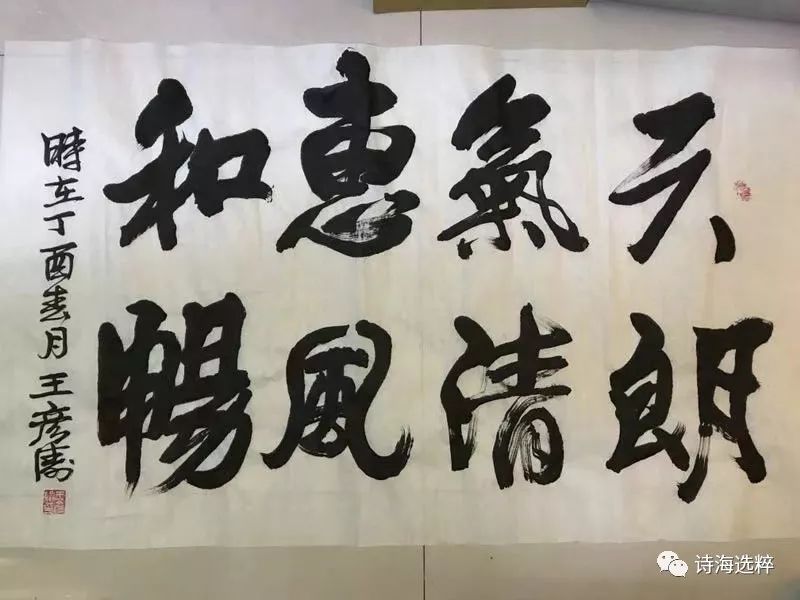 天朗
氣清
惠風
和暢
時在丁酉春月王彦涛
诗海选粹